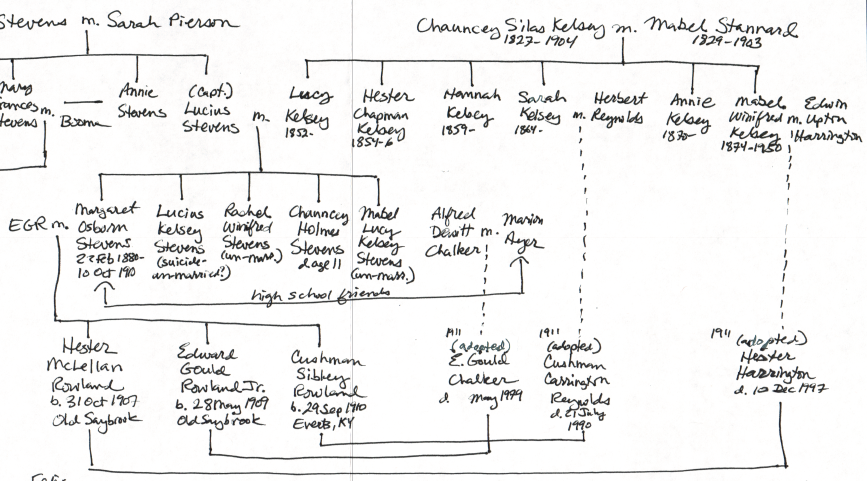 Stevens m. Sarah Pierson
Chauncey Silas Kelsey m. Mabel Stannard
1827-1904 1829-1903
Mary
Frances m.
Stevens
Annie
Stevens
(Capt.)
Lucius
Stevens
m.
Lucy
Kelsey
1852-
Hester
Chapman
Kelsey
1854-6
Hannah
Kelsey
1859-
Sarah
Kelsey m.
1864-
Herbert
Reynolds
Annie
Kelsey
1870-
Mabel
Winifred m.
Kelsey
1874-1950
Edwin
Upton
Harrington
EGR m.
Margaret
Osborn
Stevens
23 Feb 1880-
10 Oct 1910
Lucius
Kelsey
Stevens
(suicide-
un-married?)
Rachel
Winifred
Stevens
(un-marr.)
Chauncey
Holmes
Stevens
d age 11
Mabel
Lucy
Kelsey
Stevens
(un-marr.)
Alfred
Dewitt m.
Chalker
Marion
Ayer
high school friends
Hester
McLellan
Rowland
b. 31 Oct 1907
Old Saybrook
Edward
Gould
Rowland Jr.
b. 28 May 1909
Old Saybrook
Cushman
Sibley
Rowland
b. 29 Sep 1910
Everts, KY
1911
(adopted)
E. Gould
Chalker
d. May 1979
1911
(adopted)
Cushman
Carrington
Reynolds
d. 21 July
1990
1911 (adopted)
Hester
Harrington
d. 10 Dec 1997